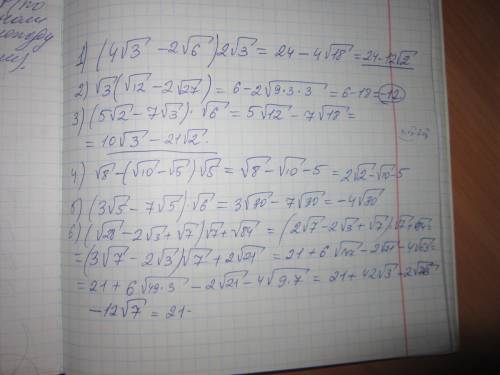 1) (4√3 − 2√6)2√3 = 24 − 4√18 = 24 − 12√2
2) √3(√12 − 2√27) = 6 − 2√9·3·3 = 6 − 18 = −12
3) (5√2 − 7√3)·√6 = 5√12 − 7√18 =
= 10√3 − 21√2.
4) √8 − (√10 − √5)√5 = √8 − √10 − 5 = 2√2 − √10 − 5
5) (3√5 − 7√5)·√6 = 3√30 − 7√30 = −4√30
6) (√28 − 2√3 + √7)√7 + √84 = (2√7 − 2√3 + √7)√7 +
= (3√7 − 2√3)√7 + 2√21 = 21 + 6
= 21 + 6√49·3 − 2√21 − 4√9·7 = 21 + 42√3 − 2
− 12√7 = 21 -